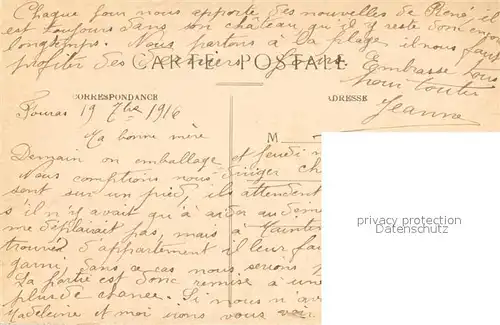 Chaque jour nous apporte des nouvelles de René, il
est toujours dans son château qu'il y reste donc encore
longtemps. Nous partons à la plage, il nous faut
profiter des derniers jours.
CARTE POSTALE
Embrasse tous
pour toutes
Jeanne
CORRESPONDANCE
ADRESSE
Fouras 19 7bre 1916
M
Ma bonne mère
Demain on emballage et jeudi
Nous comptions nous diriger
sont sur un pied, ils attendent
s'il n'y avait qu'à aider au
me déplairait pas, mais à
trouvé d'appartement il leur
garni, dans ce cas nous serions
La partie est donc remise à une
plus de chance. Si nous n
Madeleine et moi irons vous voir
privacy protection
Datenschutz